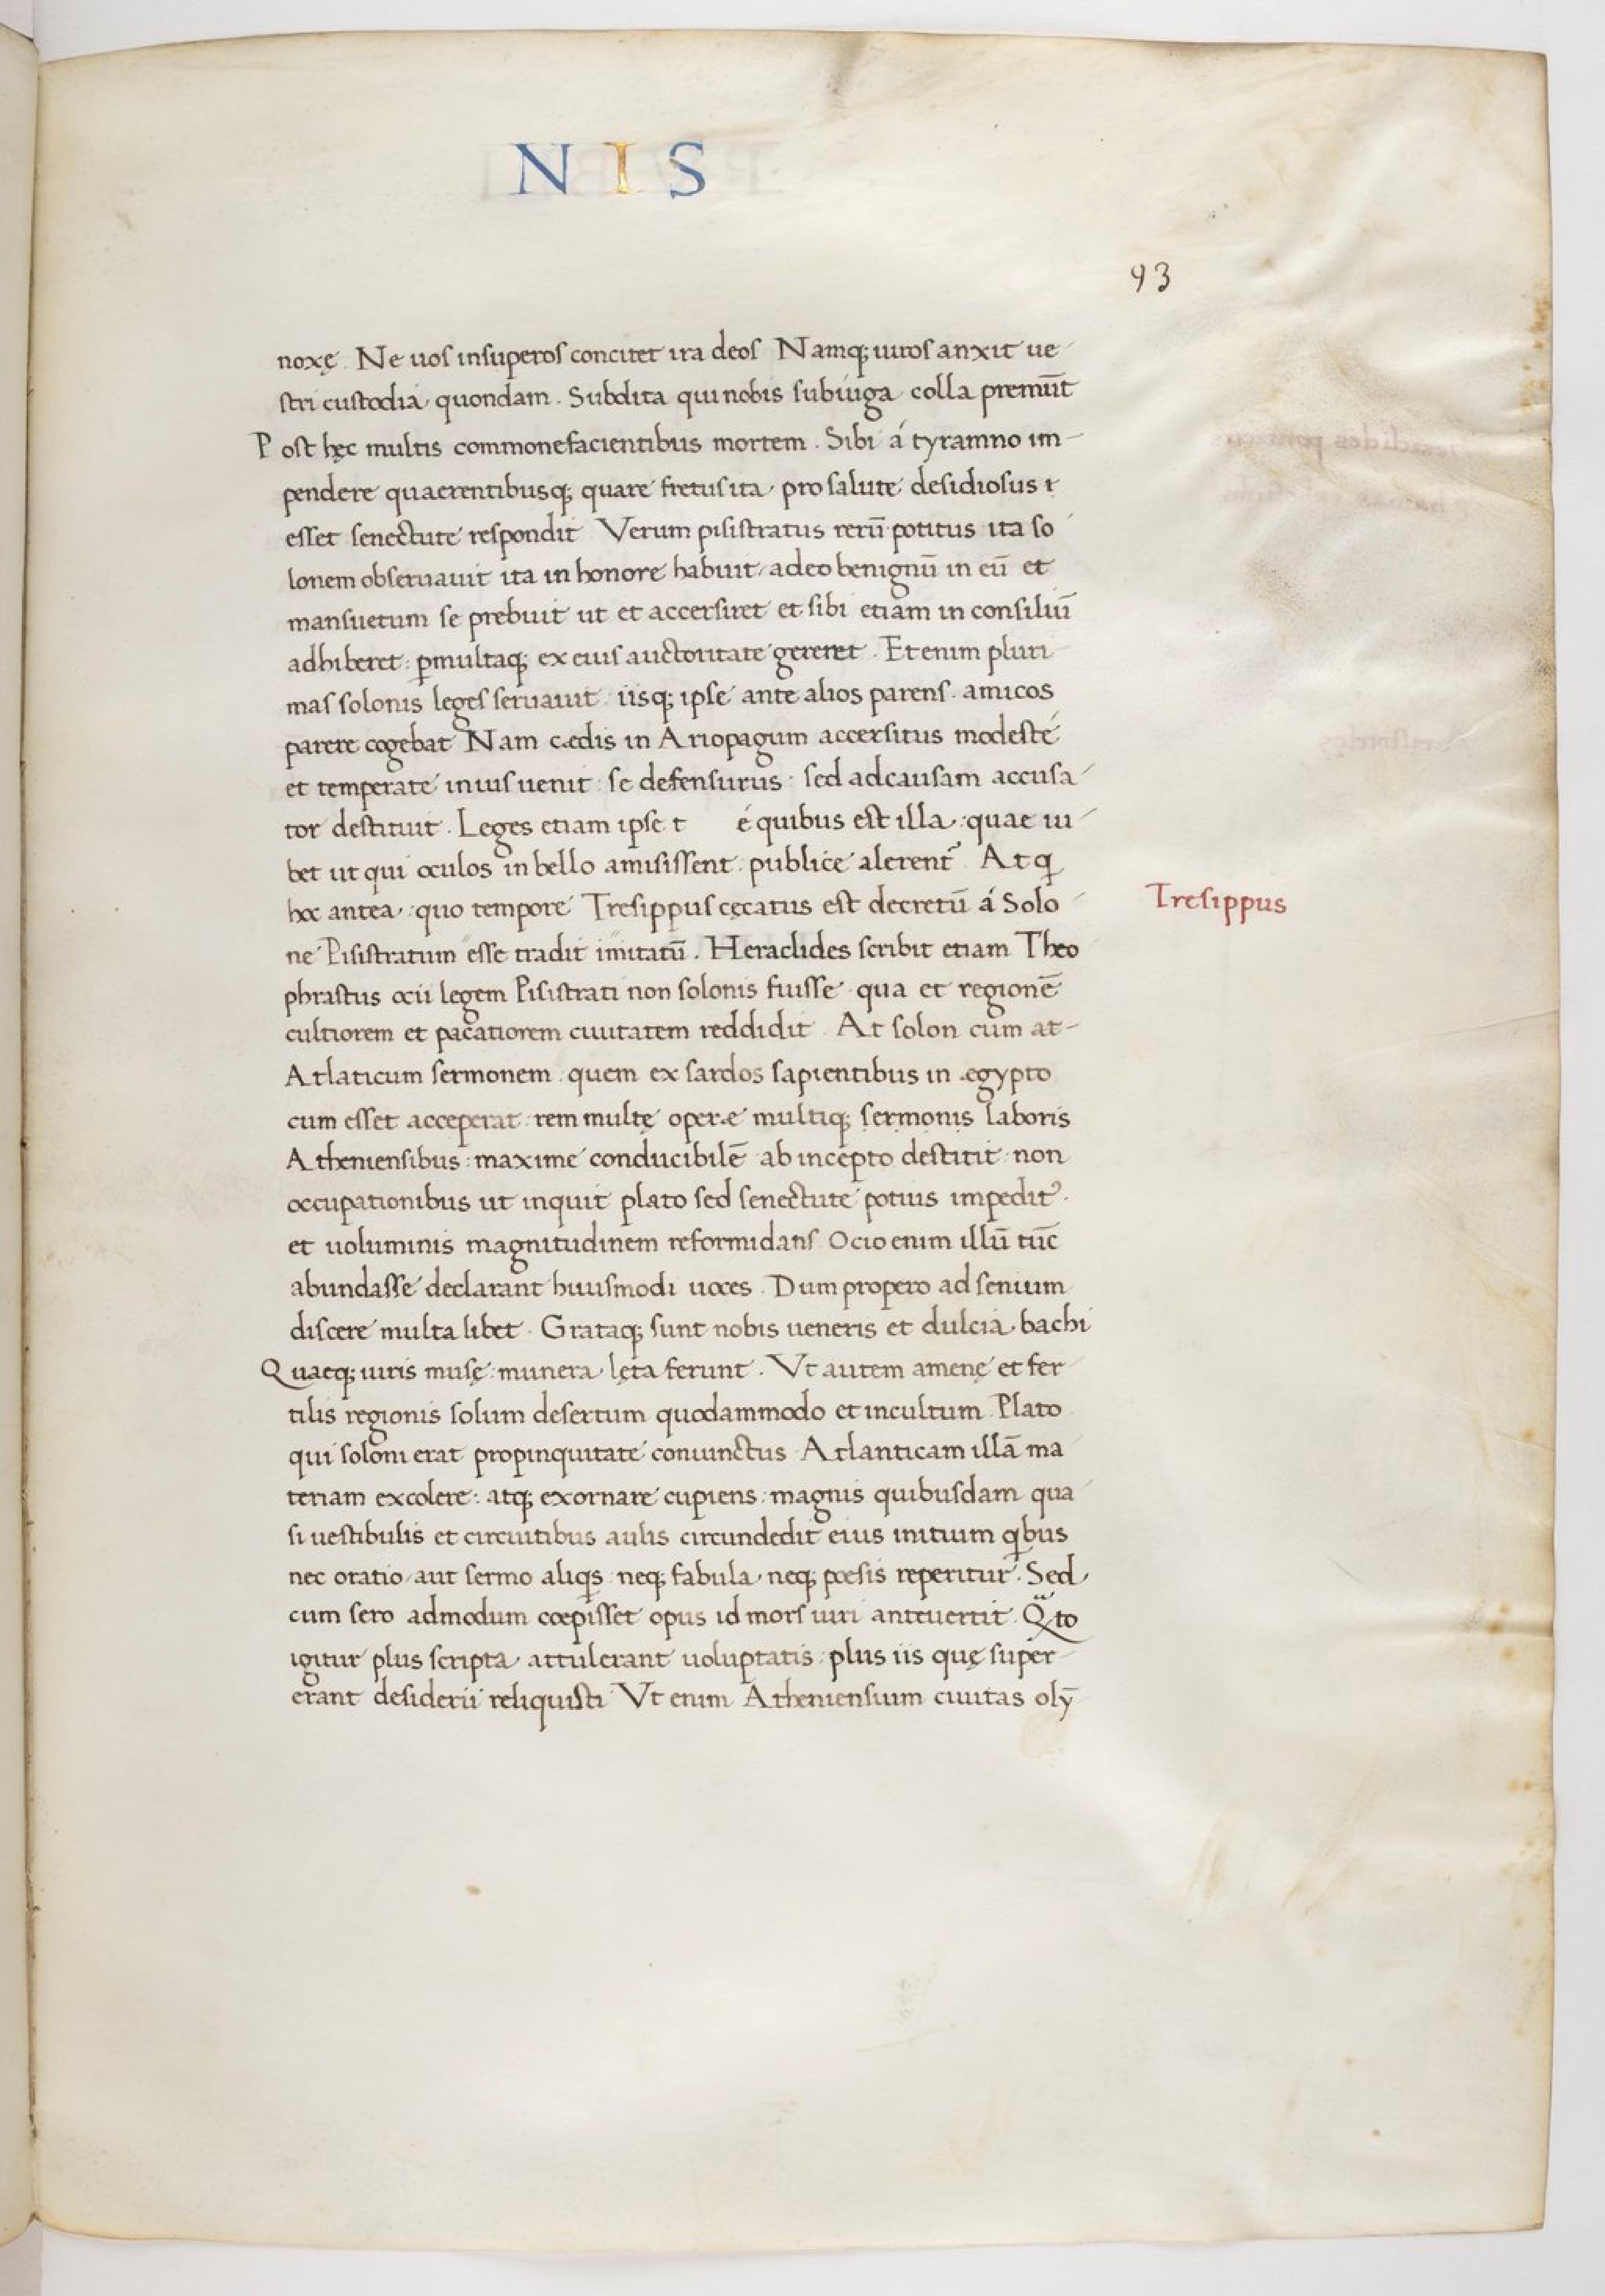 N I S
93
noxę. Ne uos insuperos concitet ira deos Namq; uiros anxit ue-
stri custodia quondam. Subdita qui nobis subiuga colla premūt
Post hęc multis commonefacientibus mortem. Sibi á tyramno im-
pendere quaerentibusq; quare fretus ita pro salute desidiosus
esset senectute respondit Verum pisistratus rerū potitus ita so
lonem obseruauit ita in honore habuit, adeo benignū in eū et
mansuetum se prebuit ut et accersiret et sibi etiam in consiliū
adhiberet: ꝑmultaq; ex eius auctoritate gereret. Et enim pluri
mas solonis leges seruauit: iisq; ipse ante alios parens. amicos
parere cogebat Nam cædis in Ariopagum accersitus modeste
et temperate in ius uenit: se defensurus: sed ad causam accusa
tor destituit. Leges etiam ipse t é quibus est illa: quae iu
bet ut qui oculos in bello amisissent: publice alerent᷑ Atq;
hoc antea: quo tempore Tresippus cęcatus est decretū á Solo
Tresippus
ne Pisistratum esse tradit imitatū. Heraclides scribit etiam Theo
phrastus ocii legem Pisistrati non solonis fuisse qua et regionē
cultiorem et pacatiorem ciuitatem reddidit. At solon cum at-
Atlaticum sermonem: quem ex sardos sapientibus in ægypto
cum esset acceperat: rem multę operæ multiq; sermonis laboris
Atheniensibus: maxime conducibilē ab incepto destitit: non
occupationibus ut inquit plato sed senectute potius impedit᷑.
et uoluminis magnitudinem reformidans Ocio enim illū tūc
abundasse declarant huiusmodi uoces. Dum propero ad senium
discere multa libet. Grataq; sunt nobis ueneris et dulcia bachi
Quaeq; uiris musę: munera lęta ferunt. Vt autem amenę et fer
tilis regionis solum desertum quodammodo et incultum. Plato
qui soloni erat propinquitate coniunctus Atlanticam illā ma
teriam excolere: atq; exornare cupiens: magnis quibusdam qua
si uestibulis et circuitibus aulis circundedit eius initium qͥbus
nec oratio, aut sermo aliqͥs: neq; fabula, neq; poesis reperitur. Sed
cum sero admodum cœpisset opus id mors uiri anteuertit. Qᵃ̄to
igitur plus scripta attulerant uoluptatis: plus iis quę super-
erant desiderii reliquisti Vt enim Atheniensium ciuitas olȳ